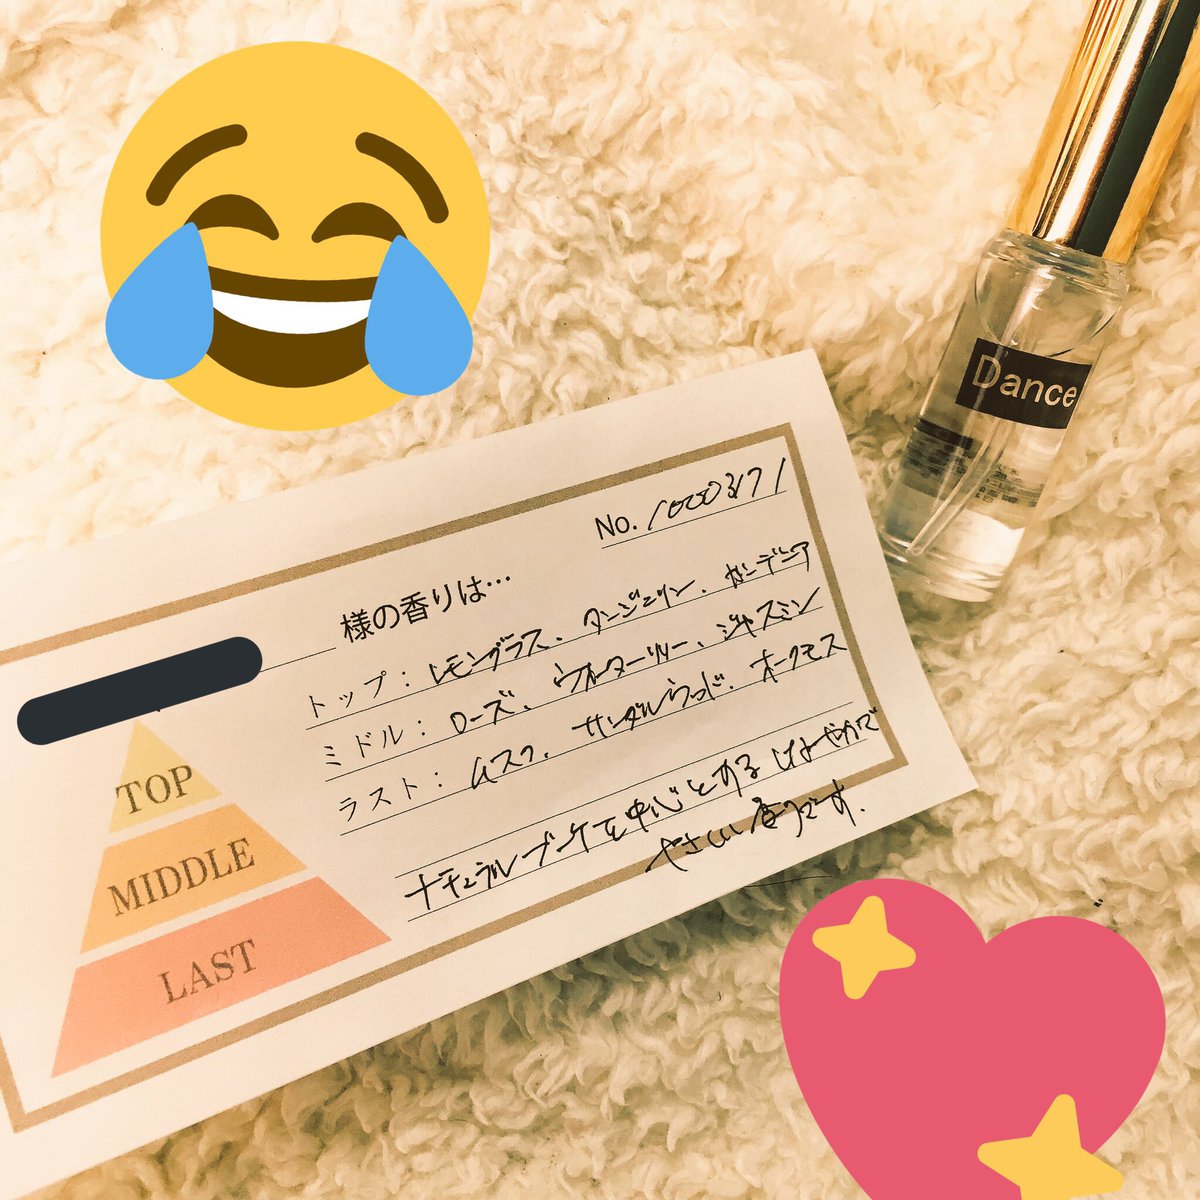 Dance
No. 10003171
様の香りは…
トップ：レモングラス、タンジェリン、ガーデニア
ミドル：ローズ、ウォーターリリー、ジャスミン
ラスト：ムスク、サンダルウッド、オークモス
ナチュラルブーケを中心とする はなやかで
やさしい香りです.
TOP
MIDDLE
LAST